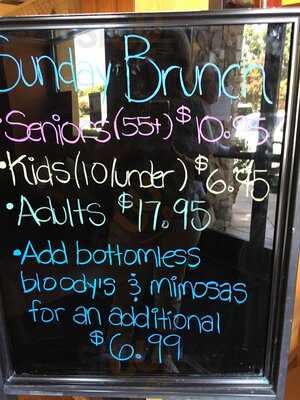 Sunday Brunch
• Seniors (55+) $10.95
• Kids (10/under) $6.95
• Adults $17.95
• Add bottomless
bloody's & mimosas
for an additional
$6.99